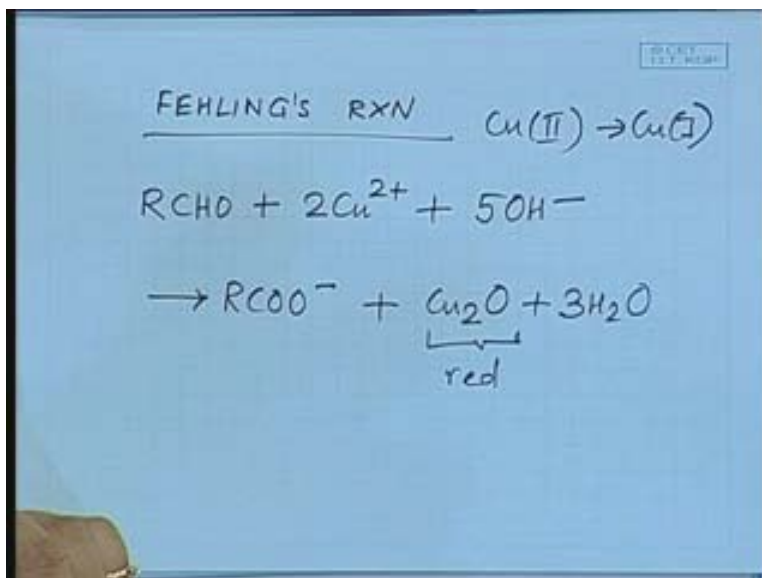 FEHLING'S RXN Cu(II)→Cu(I)
RCHO + 2Cu²⁺ + 5OH⁻
→ RCOO⁻ + Cu₂O + 3H₂O
red